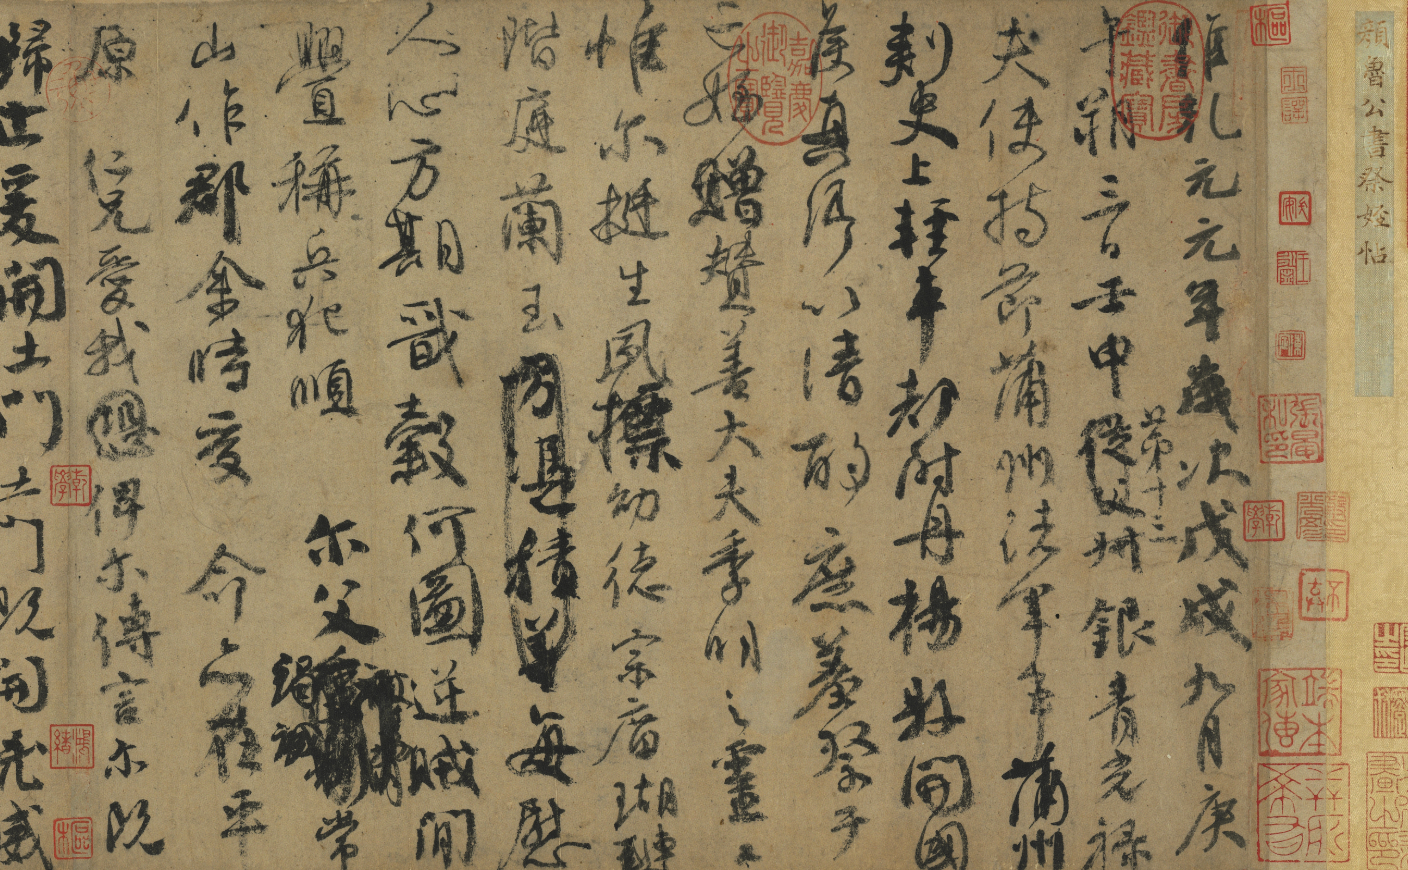 顏魯公書祭姪帖
維乾元元年歲次戊戌九月庚
午朔三日壬申第十三從父銀青光祿
夫使持節蒲州諸軍事蒲州
刺史上輕車都尉丹楊縣開國
侯真卿以清酌庶羞祭于
亡姪贈贊善大夫季明之靈曰
惟爾挺生夙標幼德宗廟瑚璉
階庭蘭玉方憑積善每慰
人心方期戩穀何圖逆賊閒
釁稱兵犯順爾父竭誠常
山作郡余時受命亦在平
原仁兄愛我恐俾爾傳言爾既
歸止爰開土門土門既開兇威